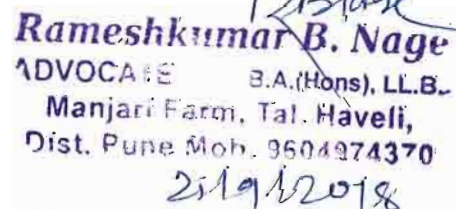 Rameshkumar B. Nage
ADVOCATE B.A.(Hons), LL.B.
Manjari Farm, Tal. Haveli,
Dist. Pune Mob. 9604974370